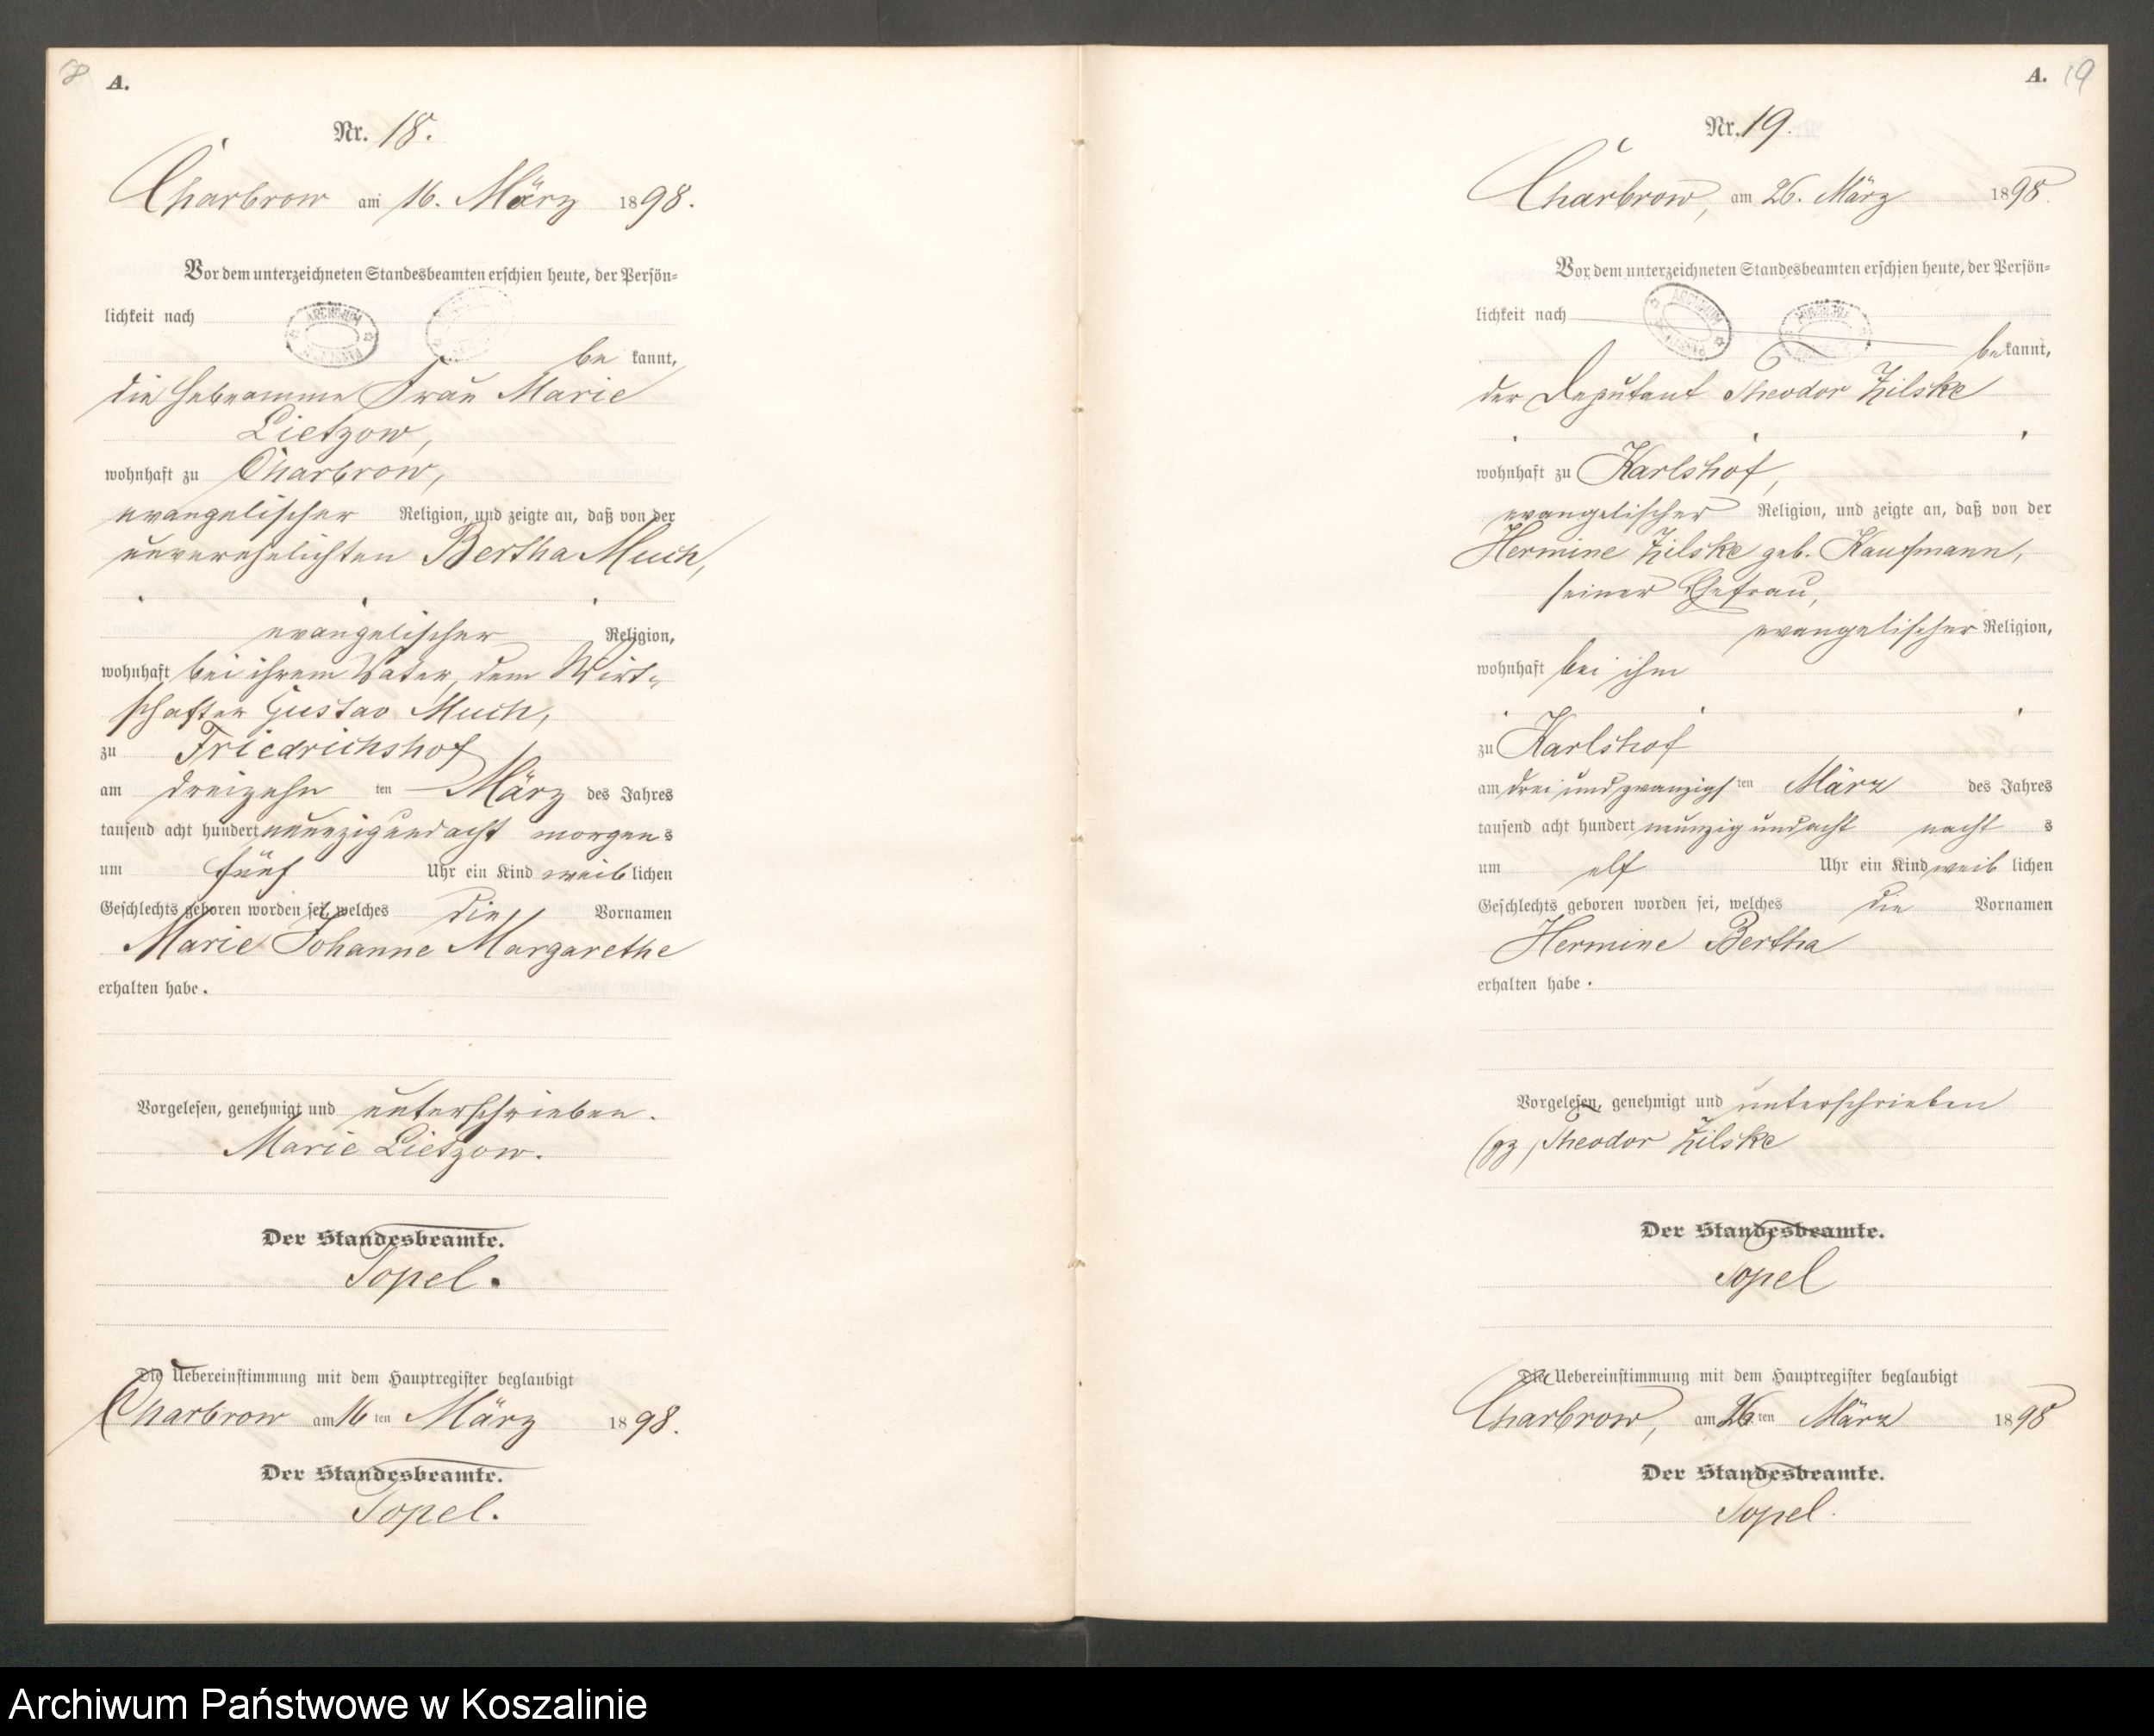 18
A.
Nr. 18.
Charbrow am 16. März 1898.
Vor dem unterzeichneten Standesbeamten erschien heute, der Persön-
lichkeit nach
ARCHIWUM
be kannt,
die Hebeamme Frau Marie
Lietzow,
wohnhaft zu Charbrow,
evangelischer Religion, und zeigte an, daß von der
unverehelichten Bertha Much,
evangelischer Religion,
wohnhaft bei ihrem Vater, dem Wirt-
schafter Gustav Much,
zu Friedrichshof
am dreizehn ten März des Jahres
tausend acht hundert neunzigundacht morgens
um fünf Uhr ein Kind weiblichen
Geschlechts geboren worden sei, welches die Vornamen
Marie Johanne Margarethe
erhalten habe.
Vorgelesen, genehmigt und unterschrieben.
Marie Lietzow.
Der Standesbeamte.
Topel.
Die Uebereinstimmung mit dem Hauptregister beglaubigt
Charbrow am 16 ten März 1898.
Der Standesbeamte.
Topel.
A. 19
Nr. 19.
Charbrow, am 26. März 1898.
Vor dem unterzeichneten Standesbeamten erschien heute, der Persön-
lichkeit nach
ARCHIWUM
bekannt,
der Deputant Theodor Zilske
wohnhaft zu Karlshof,
evangelischer Religion, und zeigte an, daß von der
Hermine Zilske geb. Kaufmann,
seiner Ehefrau,
evangelischer Religion,
wohnhaft bei ihm
zu Karlshof
am drei und zwanzigsten März des Jahres
tausend acht hundert neunzig und acht nachts
um elf Uhr ein Kind weiblichen
Geschlechts geboren worden sei, welches die Vornamen
Hermine Bertha
erhalten habe.
Vorgelesen, genehmigt und unterschrieben
(gz) Theodor Zilske
Der Standesbeamte.
Topel
Die Uebereinstimmung mit dem Hauptregister beglaubigt
Charbrow, am 26. ten März 1898
Der Standesbeamte.
Topel.
Archiwum Państwowe w Koszalinie